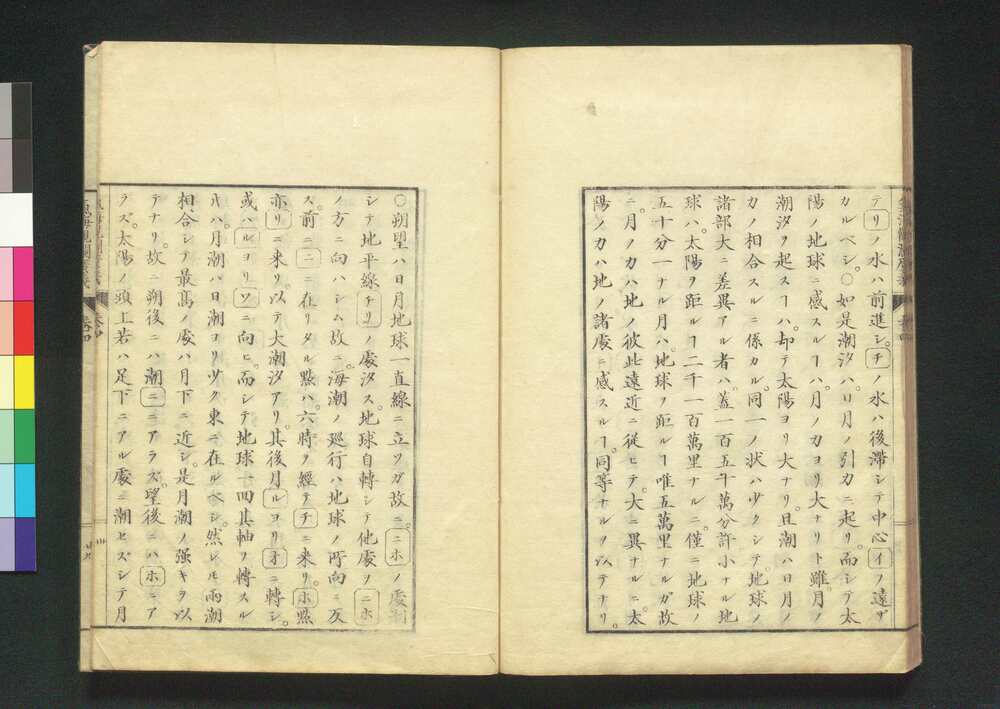 テリノ水ハ前進シ。チノ水ハ後滞シテ中心イノ遠ザ
カルベシ。〇如是潮汐ハ。日月ノ引力ニ起リ。而シテ太
陽ノ地球ニ感スルヿハ。月ノ力ヨリ大ナリト雖。月ノ
潮汐ヲ起スヿハ。却テ太陽ヨリ大ナリ。且潮ハ日月ノ
力ノ相合スルニ係カル。同一ノ状ハ少クシテ地球ノ
諸部大ニ差異アル者ハ。蓋一百五十萬分許小ナル地
球ハ。太陽ヲ距ルヿ二千一百萬里ナルニ。僅ニ地球ノ
五十分一ナル月ハ。地球ヲ距ルヿ唯五萬里ナルガ故
ニ。月ノ力ハ地ノ彼此遠近ニ從ヒテ。大ニ異ナルニ。太
陽ノ力ハ地ノ諸處ニ感スルヿ。同等ナルヲ以テナリ。
〇朔望ハ日月地球一直線ニ立ツガ故ニ。ニホノ處
シテ地平線チリノ處汐ス。地球自轉シテ他處ヲニホ
ノ方ニ向ハシム故ニ。海潮ノ廻行ハ地球ノ所向ニ反
ス。前ニニニ在リタル點ハ。六時ヲ經テチニ来リ。ホ點
亦リニ来リ。以テ大潮汐アリ。其後月ルヨリオニ轉シ。
或ハルヨリワニ向ヒ。而シテ地球一四其軸ヲ轉スル
片ハ。月潮ハ日潮ヨリ少ク東ニ在ルベシ。然レモ両潮
相合シテ最高ノ處ハ月下ニ近シ。是月潮ノ強キヲ以
テナリ。故ニ朔後ニハ潮ニニアラズ。望後ニハホニア
ラズ。太陽ノ頭上若ハ足下ニアル處ニ潮セズシテ月